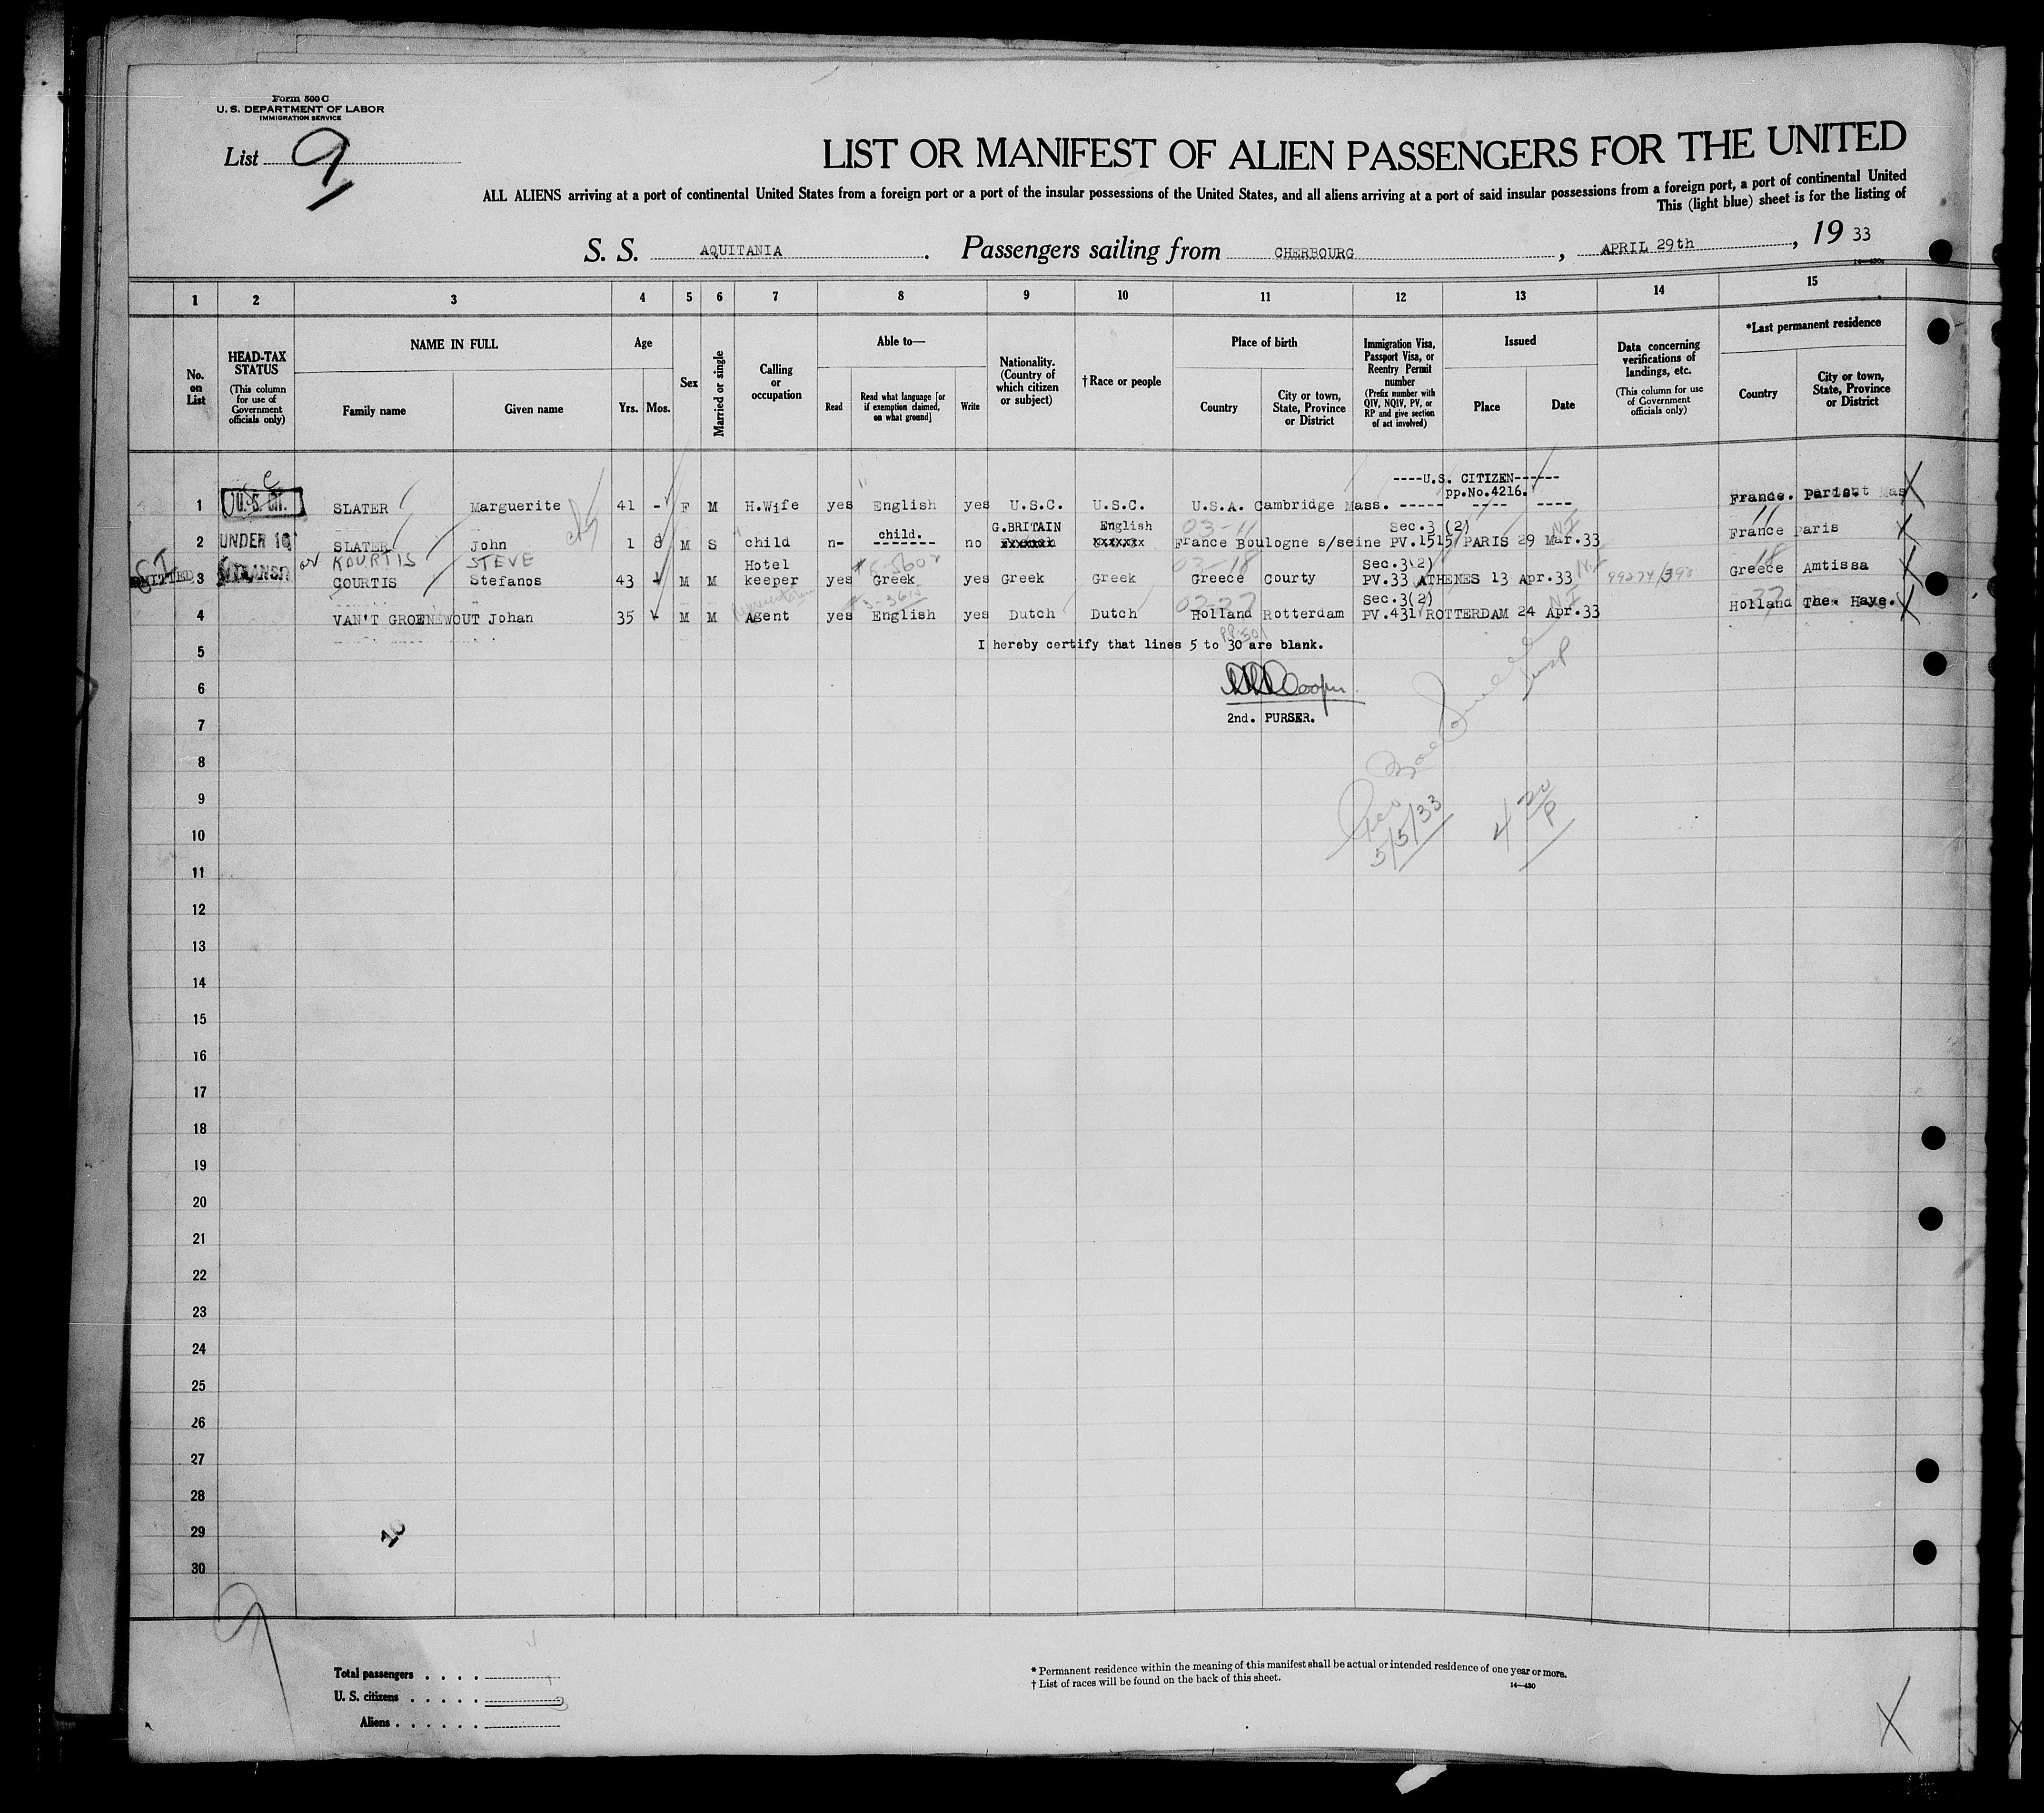 Form 500 C
U. S. DEPARTMENT OF LABOR
IMMIGRATION SERVICE
List 9
LIST OR MANIFEST OF ALIEN PASSENGERS FOR THE UNITED
ALL ALIENS arriving at a port of continental United States from a foreign port or a port of the insular possessions of the United States, and all aliens arriving at a port of said insular possessions from a foreign port, a port of continental United
This (light blue) sheet is for the listing of
S. S. AQUITANIA. Passengers sailing from CHERBOURG, APRIL 29th, 19 33
14—430
1 2 3 4 5 6 7 8 9 10 11 12 13 14 15
No. on List
HEAD-TAX STATUS (This column for use of Government officials only)
NAME IN FULL
Family name
Given name
Age
Yrs. Mos.
Sex
Married or single
Calling or occupation
Able to—
Read
Read what language [or if exemption claimed, on what ground]
Write
Nationality. (Country of which citizen or subject)
† Race or people
Place of birth
Country
City or town, State, Province or District
Immigration Visa, Passport Visa, or Reentry Permit number (Prefix number with QIV, NQIV, PV, or RP and give section of act involved)
Issued
Place
Date
Data concerning verifications of landings, etc. (This column for use of Government officials only)
*Last permanent residence
Country
City or town, State, Province or District
----U.S. CITIZEN------
pp.No.4216.
1 U.S. Cit. SLATER Marguerite 41 - F M H.Wife yes English yes U.S.C. U.S.C. U.S.A. Cambridge Mass. ----- ---- ---- France. Paris.
child. G.BRITAIN English 03-11 Sec.3 (2) N.I
2 UNDER 16 SLATER John 1 8 M S child n- ------- no xxxxxxx xxxxxxx France Boulogne s/seine PV.1515 PARIS 29 Mar.33 France paris
or KOURTIS STEVE Hotel 03-18 Sec.3(2) 18
3 TRANSIT COURTIS Stefanos 43 - M M keeper yes Greek yes Greek Greek Greece Courty PV.33 ATHENES 13 Apr.33 Greece Amtissa
Sec.3(2) 27
4 VAN'T GROENEWOUT Johan 35 M M Agent yes English yes Dutch Dutch Holland Rotterdam PV.431 ROTTERDAM 24 Apr.33 Holland The. Haye.
5 I hereby certify that lines 5 to 30 are blank.
6 Cooper
7 2nd. PURSER.
8
9
5/5/33
4 20 P
10
11
12
13
14
15
16
17
18
19
20
21
22
23
24
25
26
27
28
29
30
9
Total passengers . . . .
U. S. citizens . . . . .
Aliens . . . . . .
* Permanent residence within the meaning of this manifest shall be actual or intended residence of one year or more.
† List of races will be found on the back of this sheet.
14—430
X